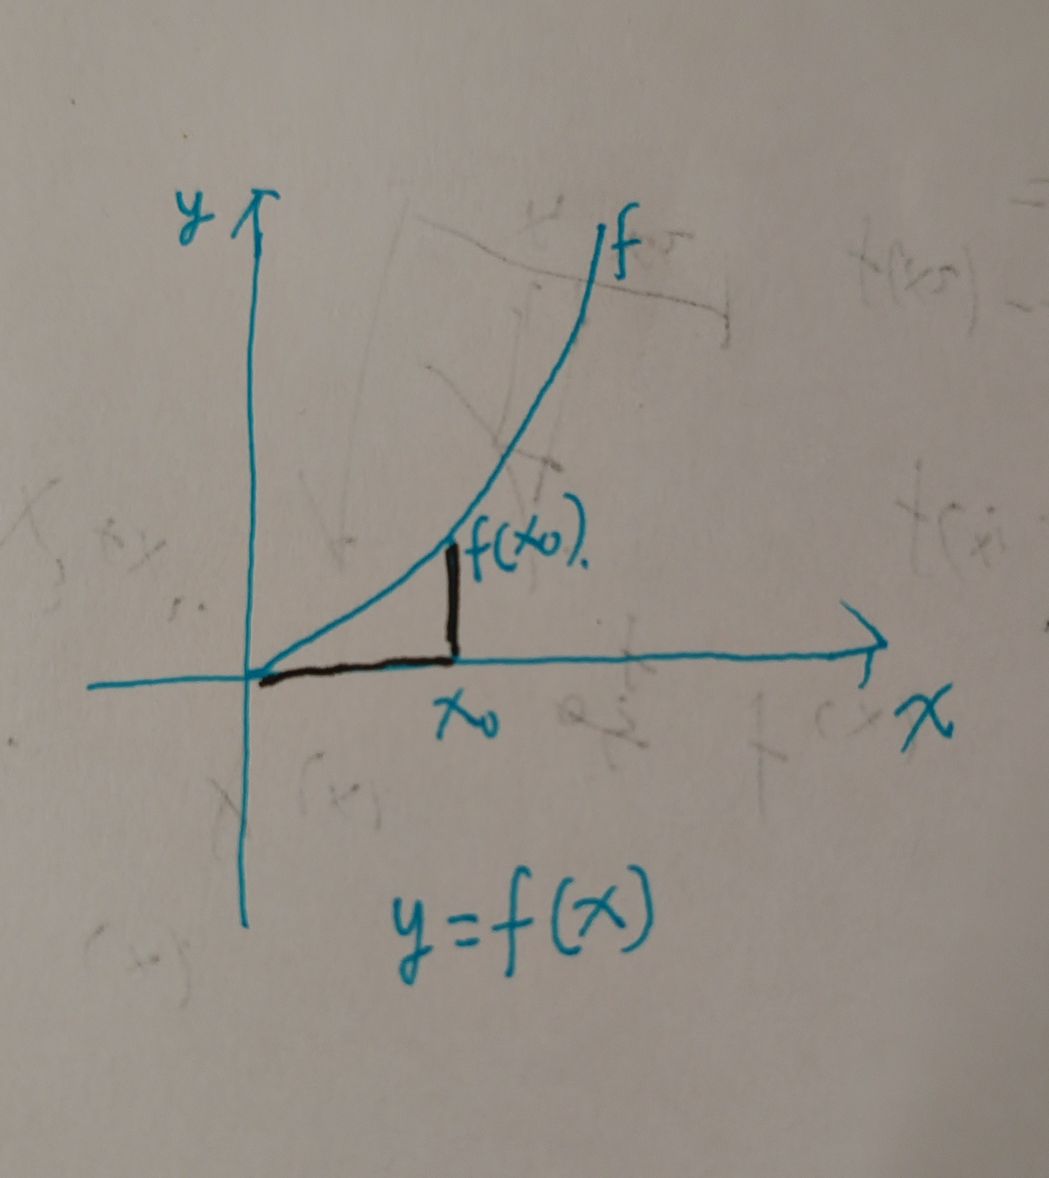 y
f
f(x₀).
x₀
x
y=f(x)